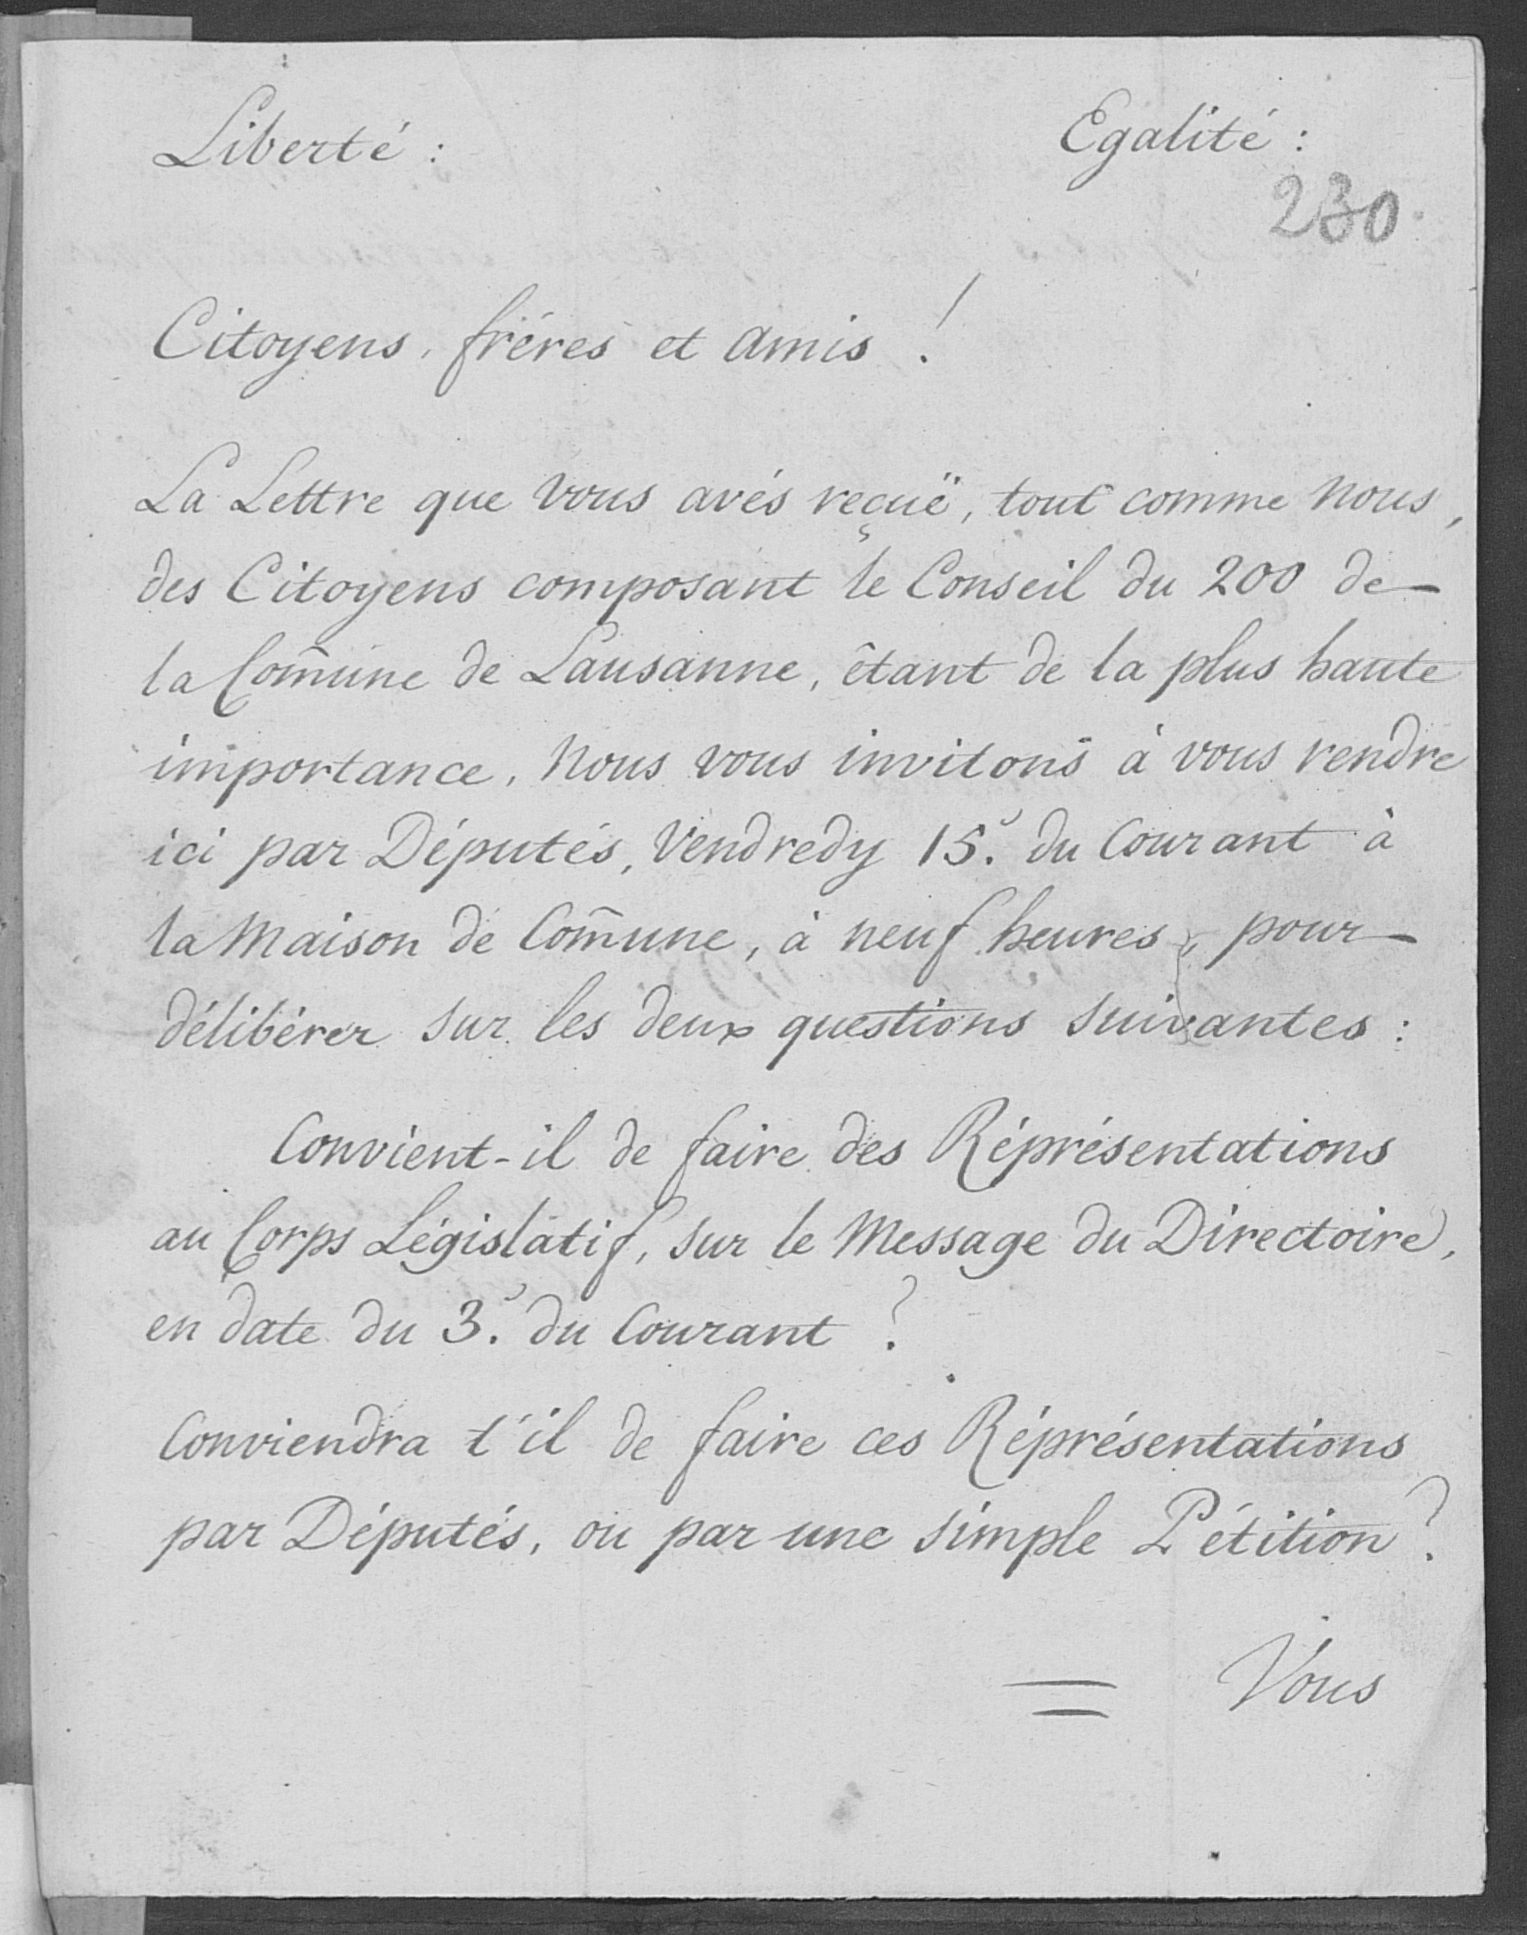 Liberté : Egalité :
230.
Citoyens, fréres et Amis !
La Lettre que vous avés reçuë, tout comme Nous,
des Citoyens composant le Conseil du 200 de
la Com̃une de Lausanne, êtant de la plus haute
importance, Nous vous invitons à vous rendre
ici par Députés, Vendredy 15.e du Courant à
la Maison de Com̃une, à neuf heures, pour
délibérer sur les deux questions suivantes :
Convient-il de faire des Réprésentations
au Corps Législatif, sur le Message du Directoire,
en date du 3.e du Courant ?
Conviendra t'il de faire ces Réprésentations
par Députés, ou par une simple Pétition ?
= Vous